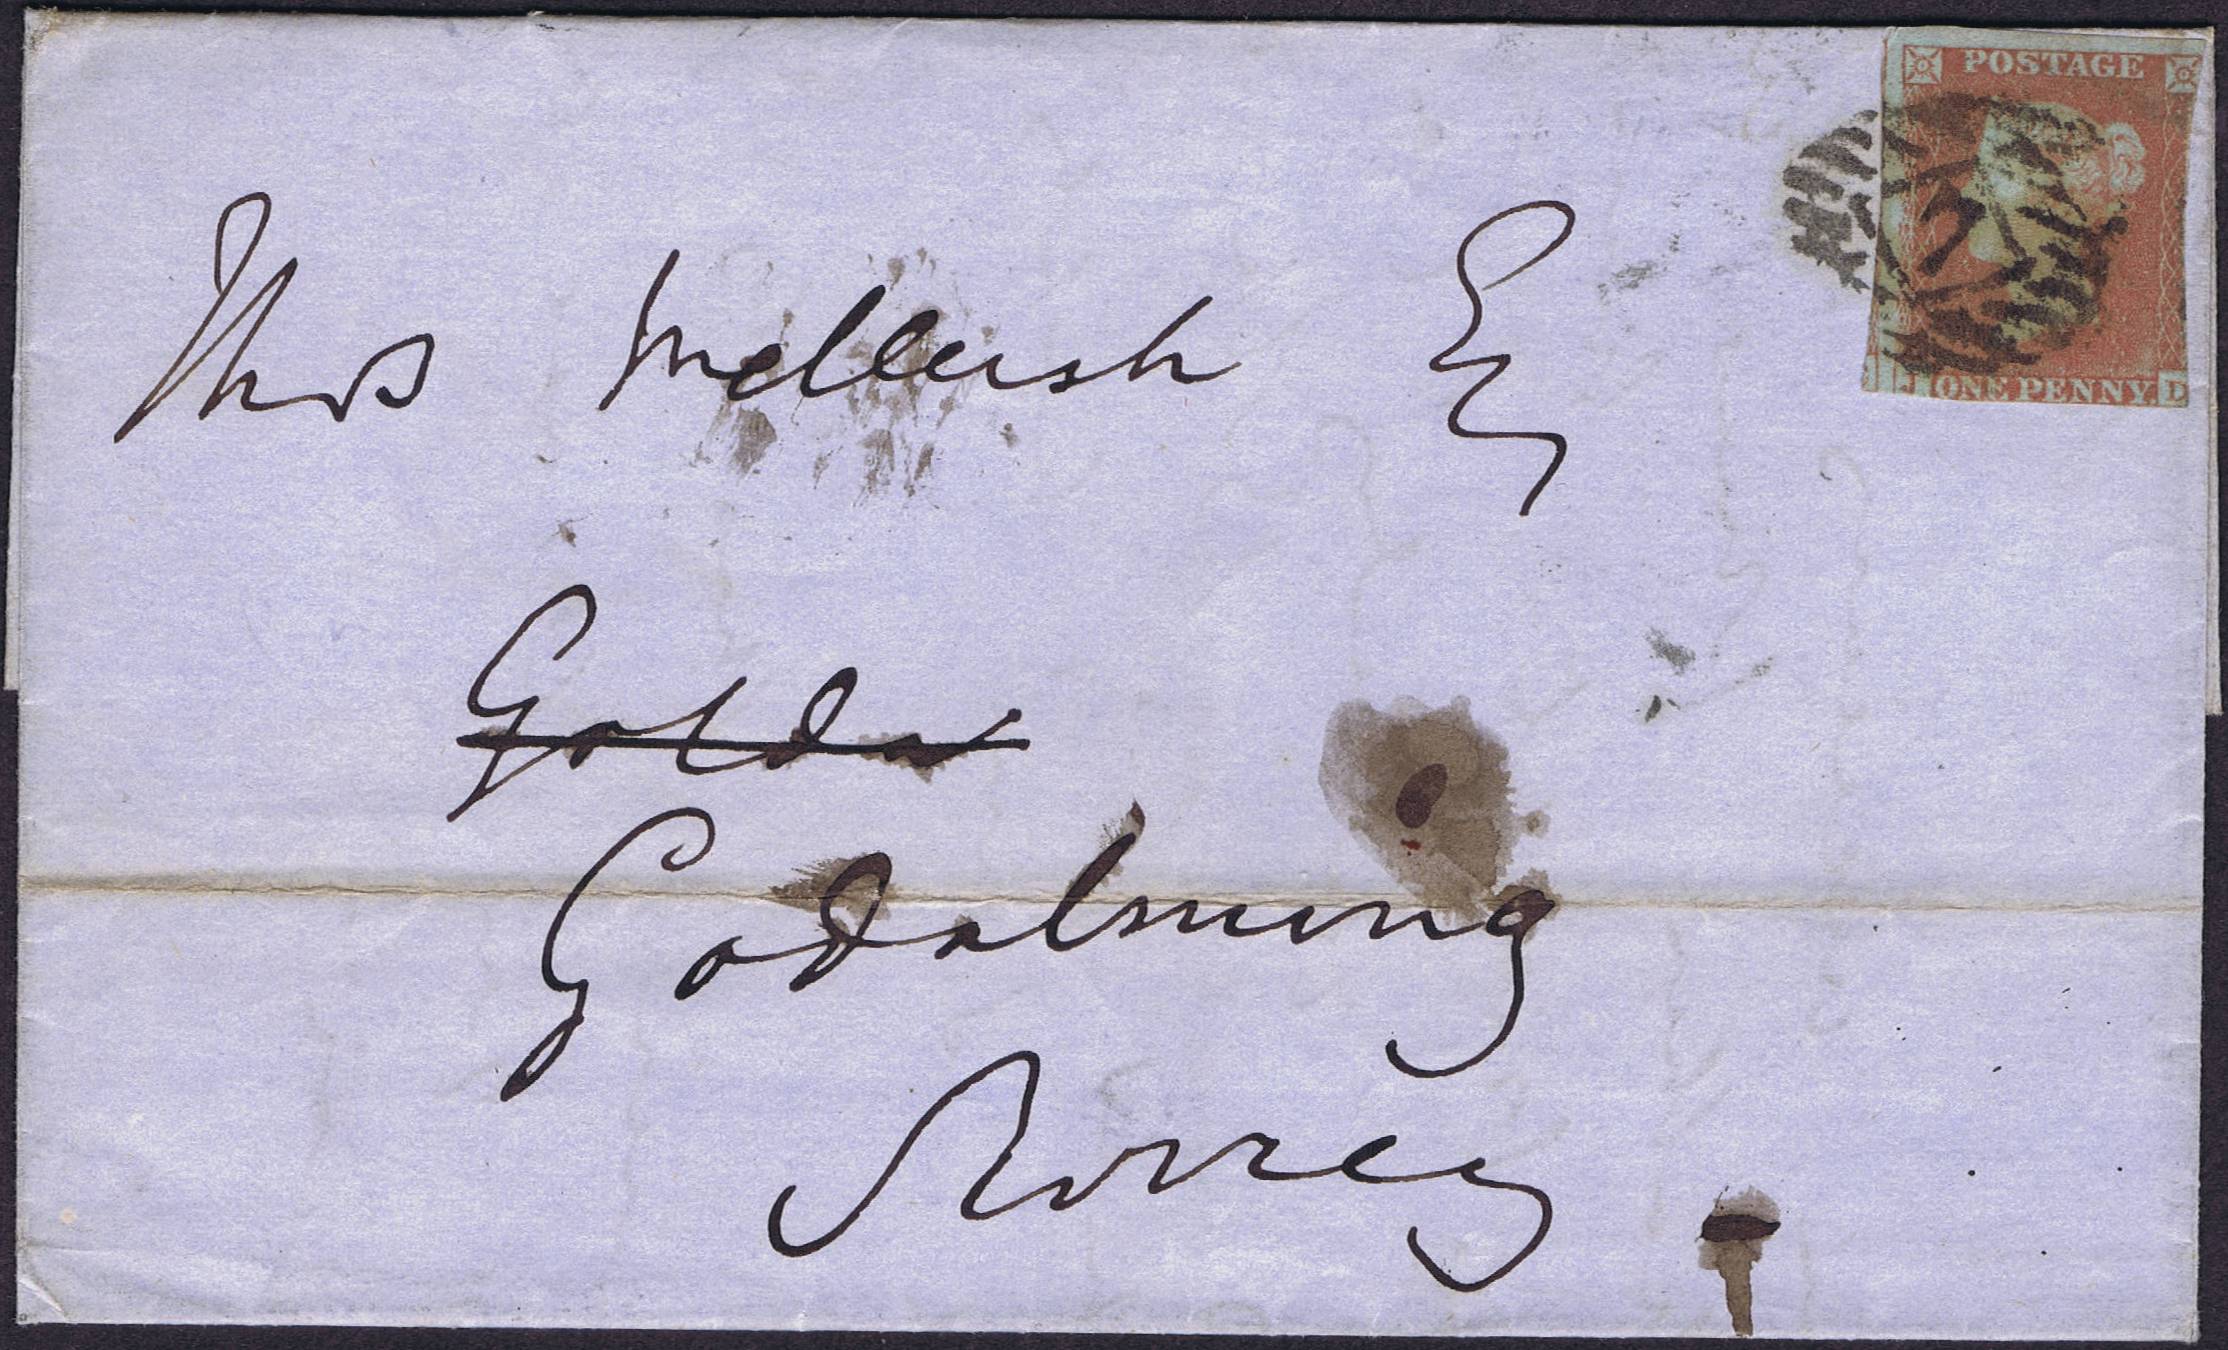 POSTAGE
ONE PENNY. D
Thos Mellersh Esq
Godalming
Surrey